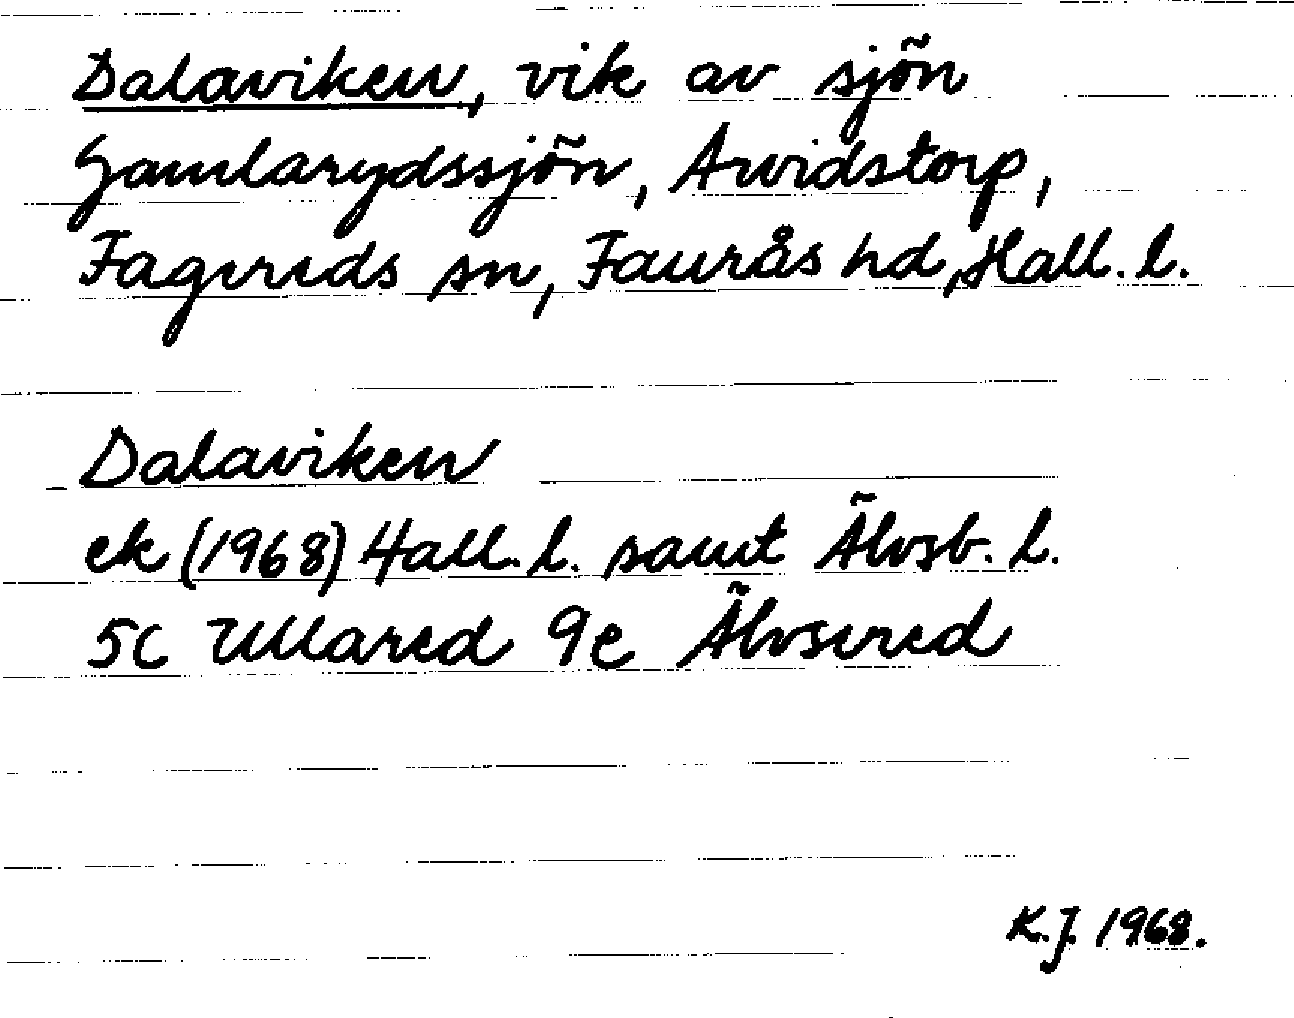 Dalaviken, vik av sjön
Gamlarydssjön, Arvidstorp,
Fagereds sn, Faurås hd, Hall. l.
Dalaviken
ek (1968) Hall. l. samt Älvsb. l.
5C Ullared 9e Älvsered
K.J. 1968.